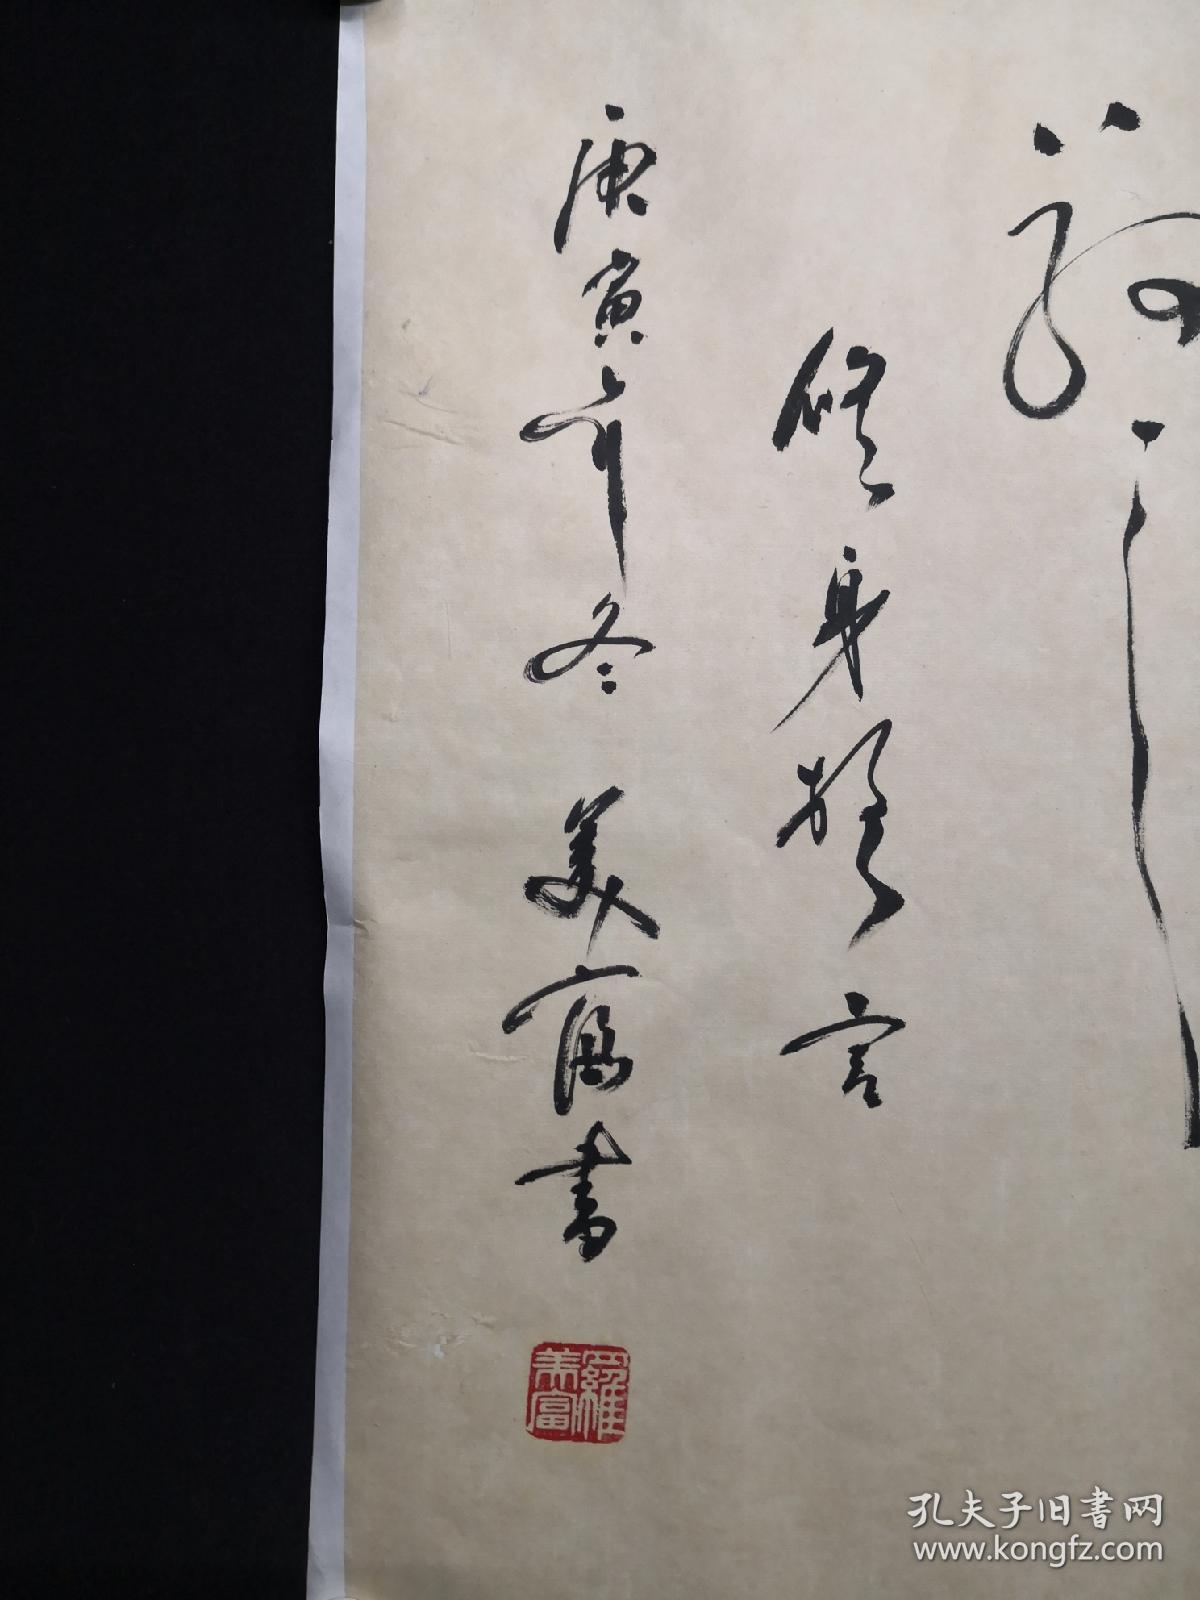 修身振言
庚寅年冬 美富书
羅美富
孔夫子旧书网
www.kongfz.com